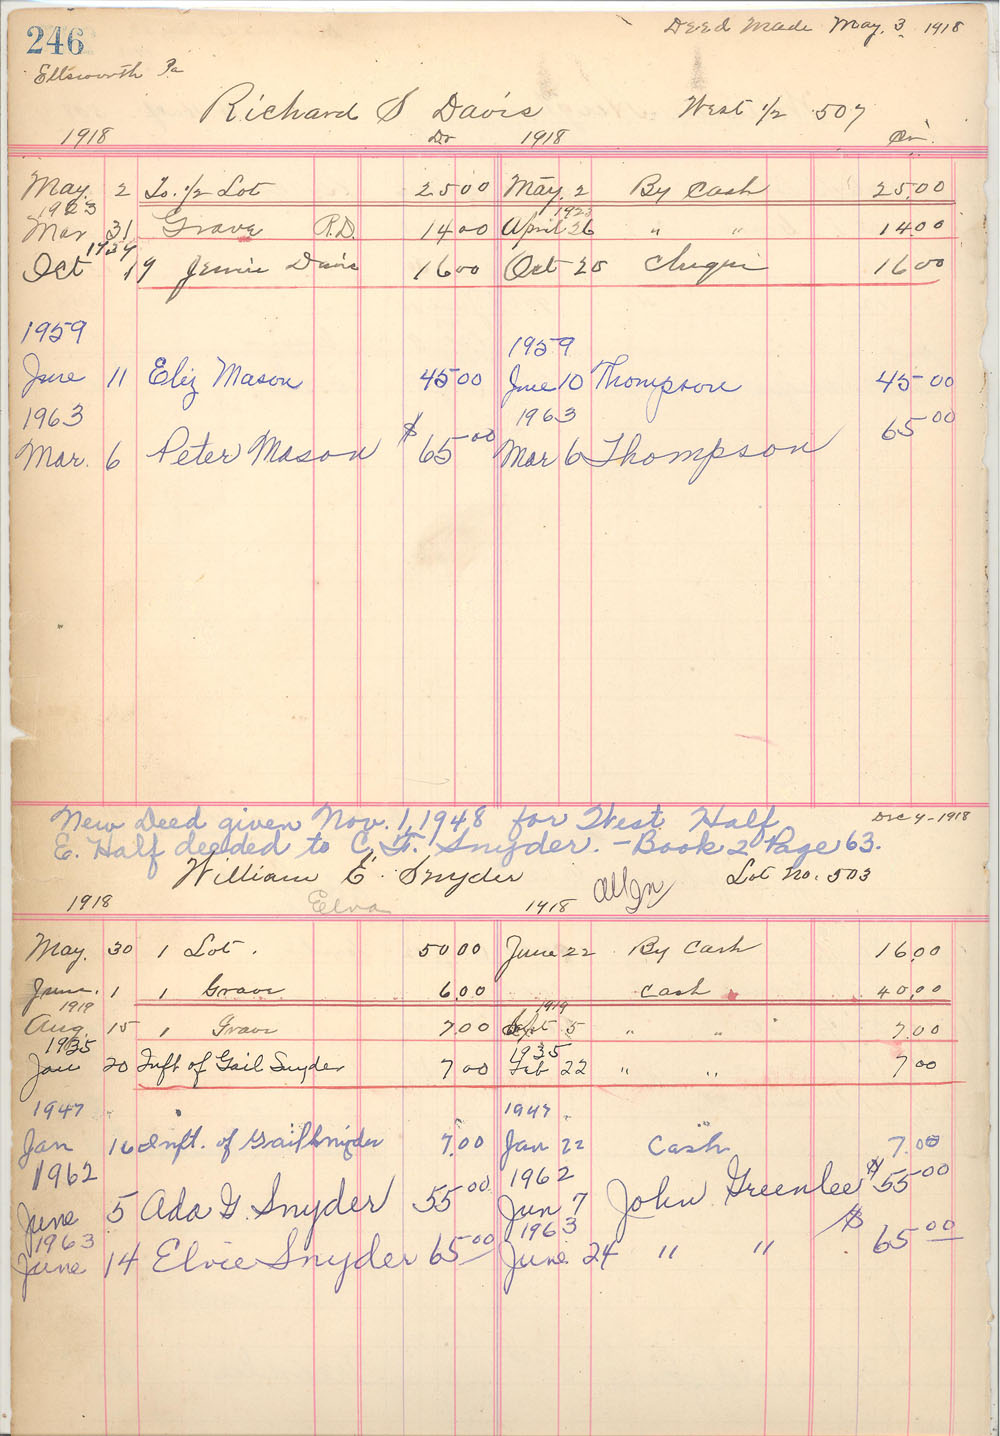 246
Deed Made May. 3 1918
Ellsworth Pa
Richard S Davis West 1/2 507
1918 Dr 1918 Cr.
May. 2 To. 1/2 Lot 25 00 May. 2 By Cash 25.00
1923 1923
Mar 31 Grave R.D. 14 00 April 26 " " 14.00
1934
Oct 19 Jennie Davis 16 00 Oct 20 16 00
1959 1959
June 11 Eliz Mason 45 00 June 10 Thompson 45 00
1963 1963
Mar. 6 Peter Mason $ 65 00 Mar 6 Thompson 65 00
New Deed given Nov. 1, 1948 for West Half Dec 4 - 1918
E. Half deeded to C. F. Snyder. - Book 2 Page 63.
William E. Snyder Lot No. 503
1918 Elva 1918
May. 30 1 Lot. 50 00 June 22 By Cash 16.00
June. 1 1 Grave 6.00 Cash 40.00
1919 1919
Aug. 15 1 Grave 7.00 Sept 5 " " 7.00
1935 1935
Jan 20 Inft of Gail Snyder 7 00 Feb 22 " " 7 00
1947 1947
Jan 16 Inft. of Gail Snyder 7.00 Jan 22 Cash 7.00
1962 1962
June 5 Ada G. Snyder 55 00 Jun 7 John Greenlee $ 55 00
1963 1963
June 14 Elvie Snyder 65 00 June 24 " " $ 65 00